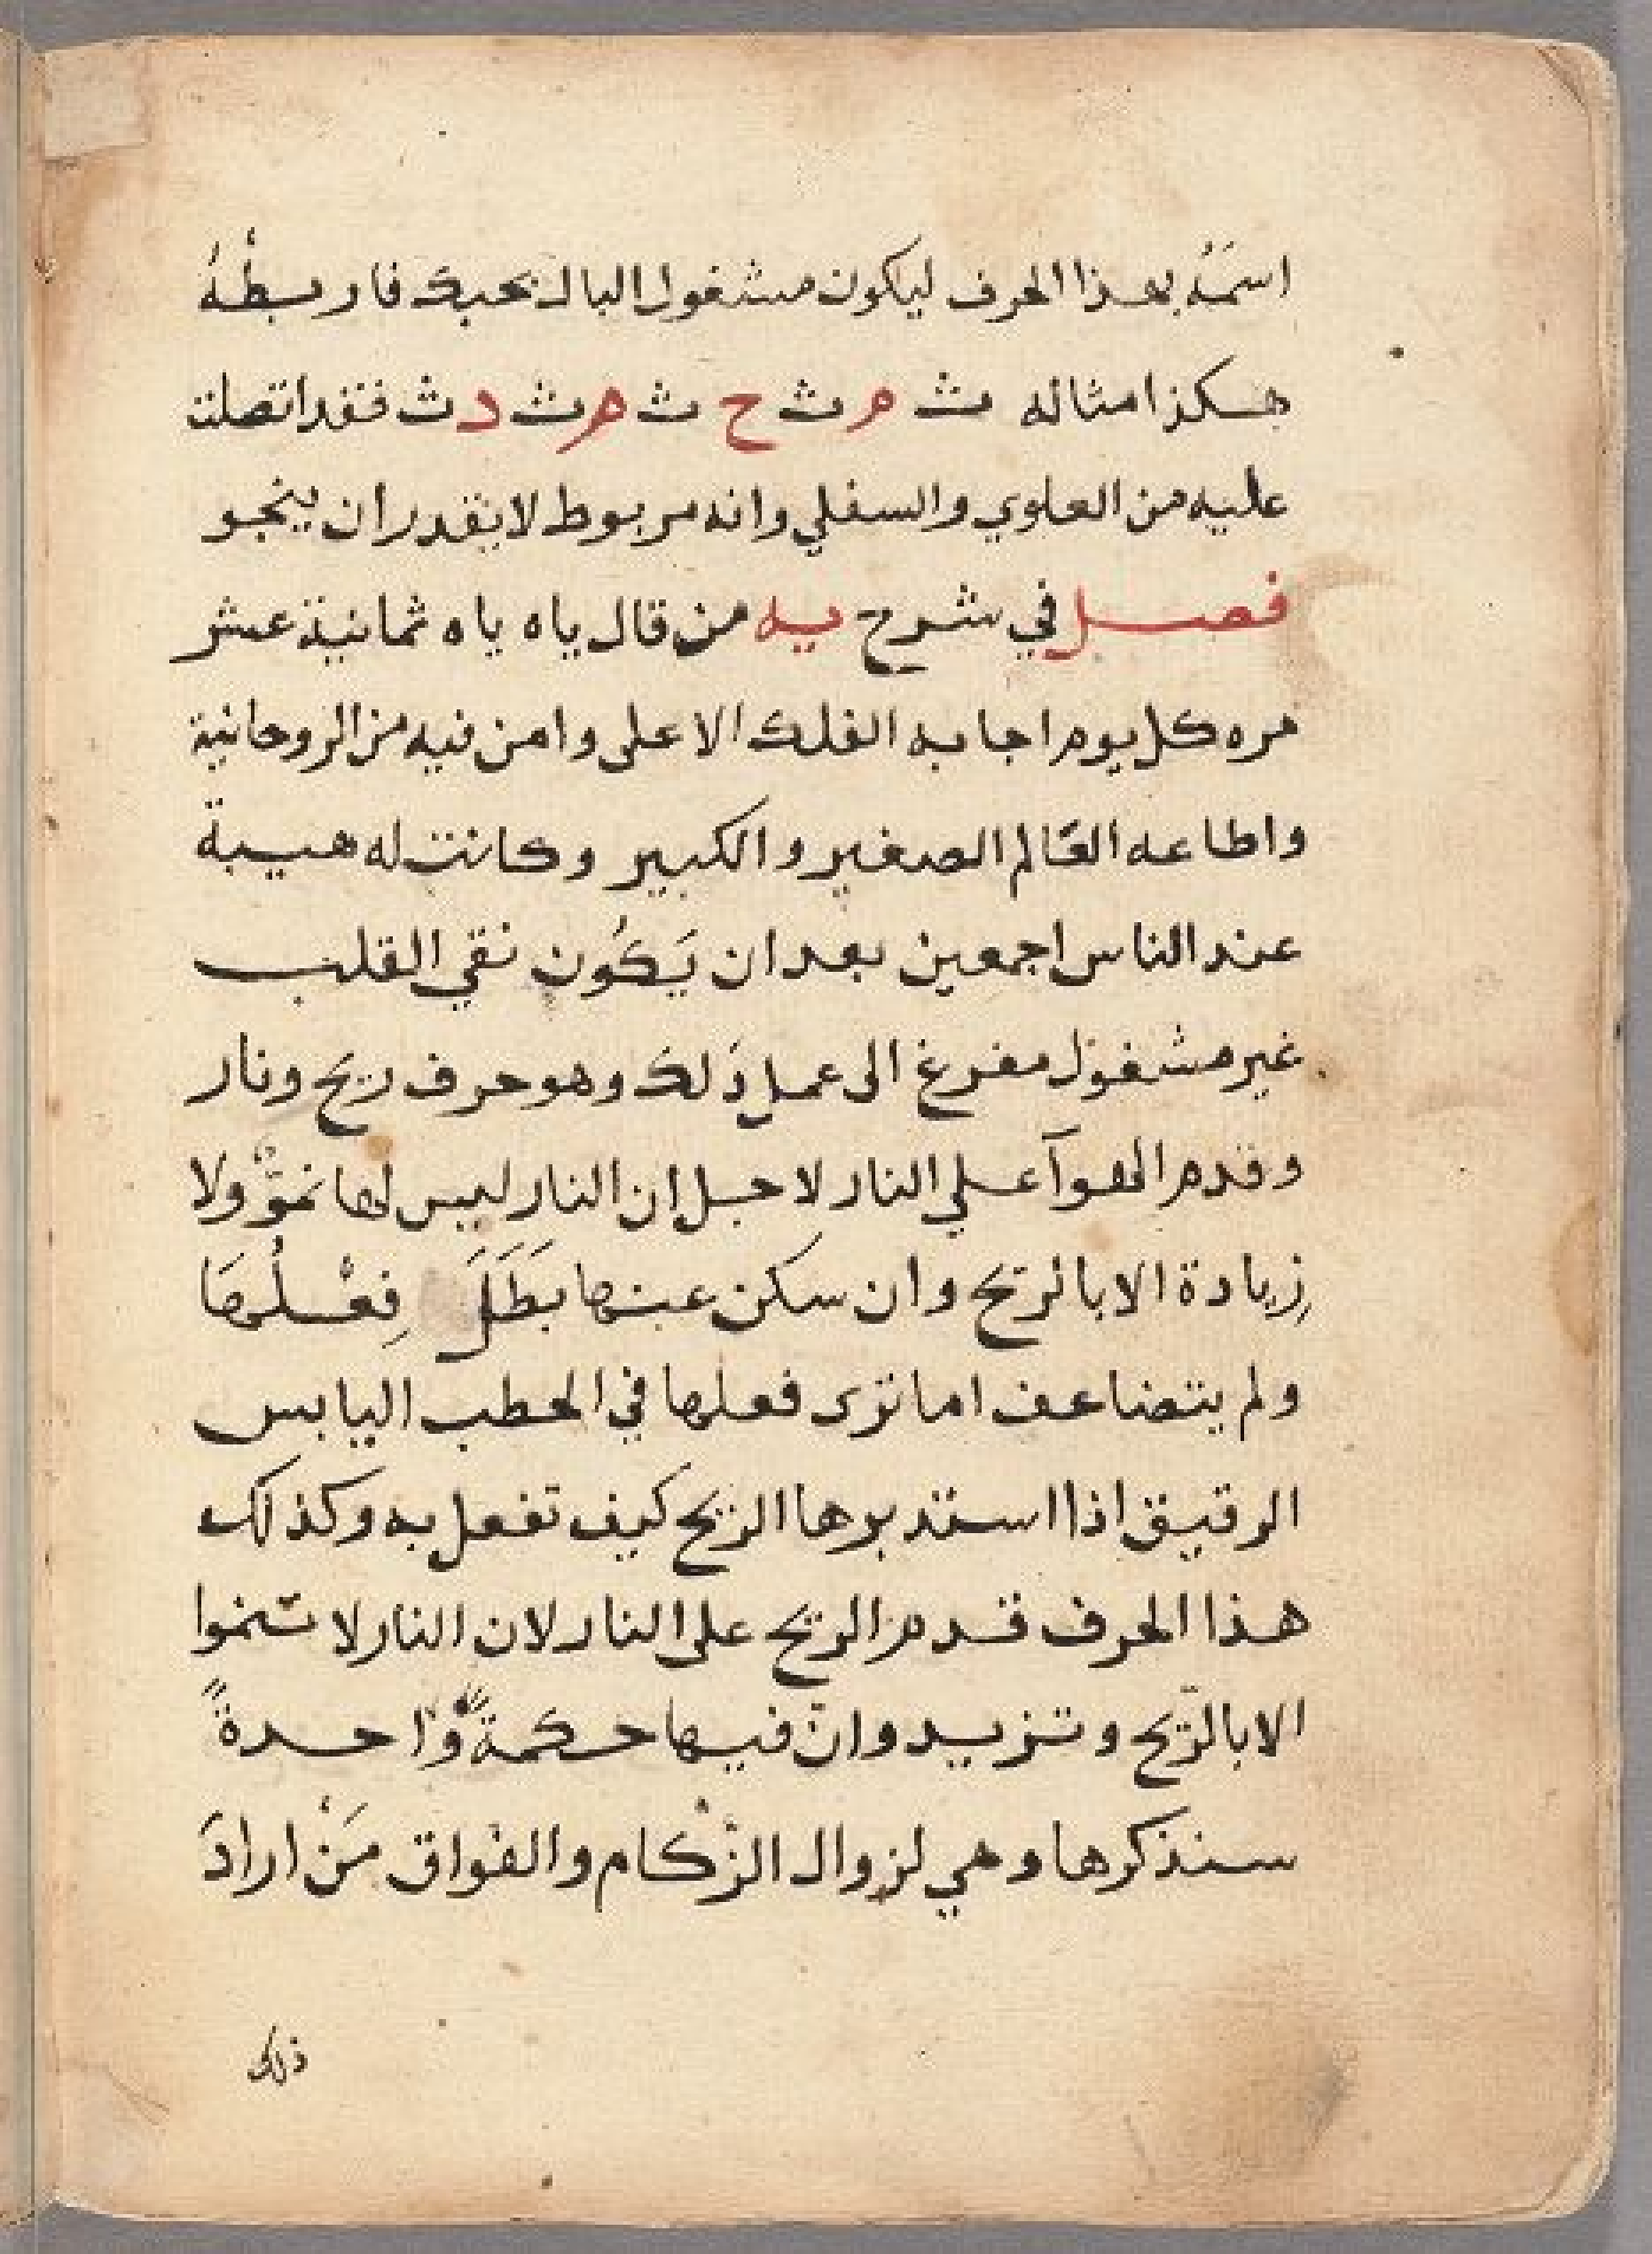 اسمَهُ بهذا الحرف ليكون مشغول البال بحبك فاربطْهُ
هكذا مثاله ث م ث ح ث م ث د ث فقد اتصلت
عليه من العلوي والسفلي وانه مربوط لا يقدر ان ينجو
فصل في شرح يه من قال ياه ياه ثمانية عشر
مره كل يوم اجابه الفلك الاعلى وامن فيه من الروحانية
واطاعه العَالم الصغير والكبير وكانت له هيبة
عند الناس اجمعين بعد ان يَكُون نقي القلب
غير مشغول مفرغ الى عمل ذَلك وهو حرف ريح ونار
وقدم الهوآ علي النار لاجل ان النار ليس لها نموّ ولا
زِيادة الا بالريح وان سكن عنها بَطَلَ فِعْلُهَا
ولم يتضاعف اما ترى فعلها في الحطب اليابس
الرقيق اذا استدبرها الريح كيف تفعل به وكذلك
هذا الحرف قدم الريح على النار لان النار لا تنموا
الا بالرّيح وتزيد وانّ فيها حكمةً وَاحدةً
سنذكرها وهي لزوال الزْكام والفواق مَنْ ارادَ
ذلك